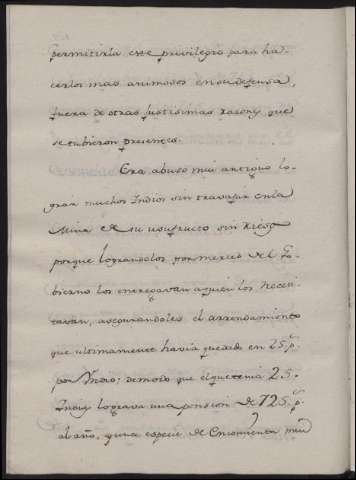 permitirla este privilegio para ha-
cerlos mas animosos en su defensa,
fuera de otras justisimas razones que
se tubieron presentes.
Era abuso mui antiguo lo-
grar muchos Indios sin travajar en la
Mina el su usufructo sin riesgo
porque lograndolos por merced del Go-
bierno los entregavan a quien los necesi-
tavan, asegurandoles el arrendamiento
que ultimamente havia quedado en 25 p.s
por Yndio; demodo que el que tenia 25
Indios lograva una pension de 725 p.s
al año, y una especie de Encomienda mui